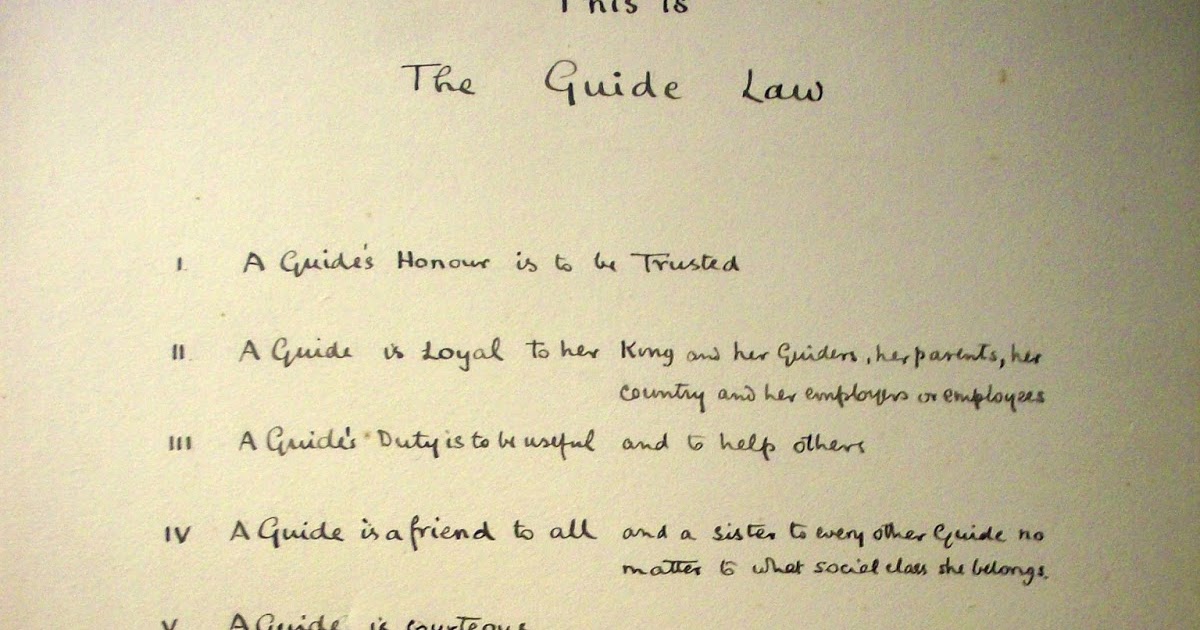 This is
The Guide Law
I. A Guide's Honour is to be Trusted
II. A Guide is Loyal to her King and her Guiders, her parents, her
country and her employers or employees
III A Guide's Duty is to be useful and to help others
IV A Guide is a friend to all and a sister to every other Guide no
matter to what social class she belongs.
V A Guide is courteous